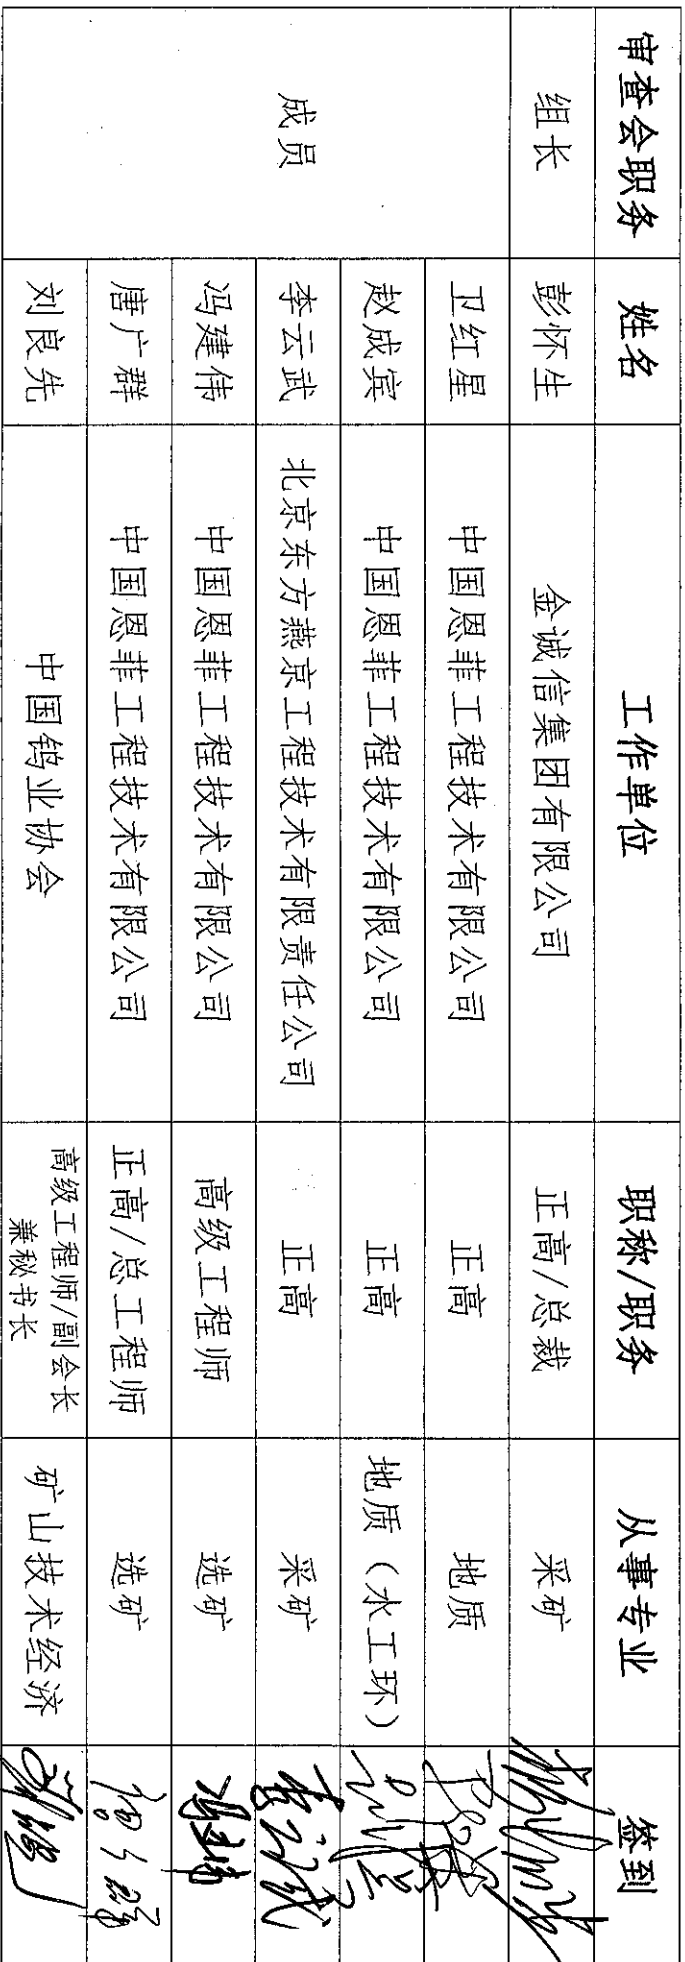 审查会职务 姓名 工作单位 职称/职务 从事专业 签到
组长 彭怀生 金诚信集团有限公司 正高/总裁 采矿
成员 卫红星 中国恩菲工程技术有限公司 正高 地质
赵成宾 中国恩菲工程技术有限公司 正高 地质（水工环）
李云武 北京东方燕京工程技术有限责任公司 正高 采矿
冯建伟 中国恩菲工程技术有限公司 高级工程师 选矿
唐广群 中国恩菲工程技术有限公司 正高/总工程师 选矿
刘良先 中国钨业协会 高级工程师/副会长
兼秘书长 矿山技术经济